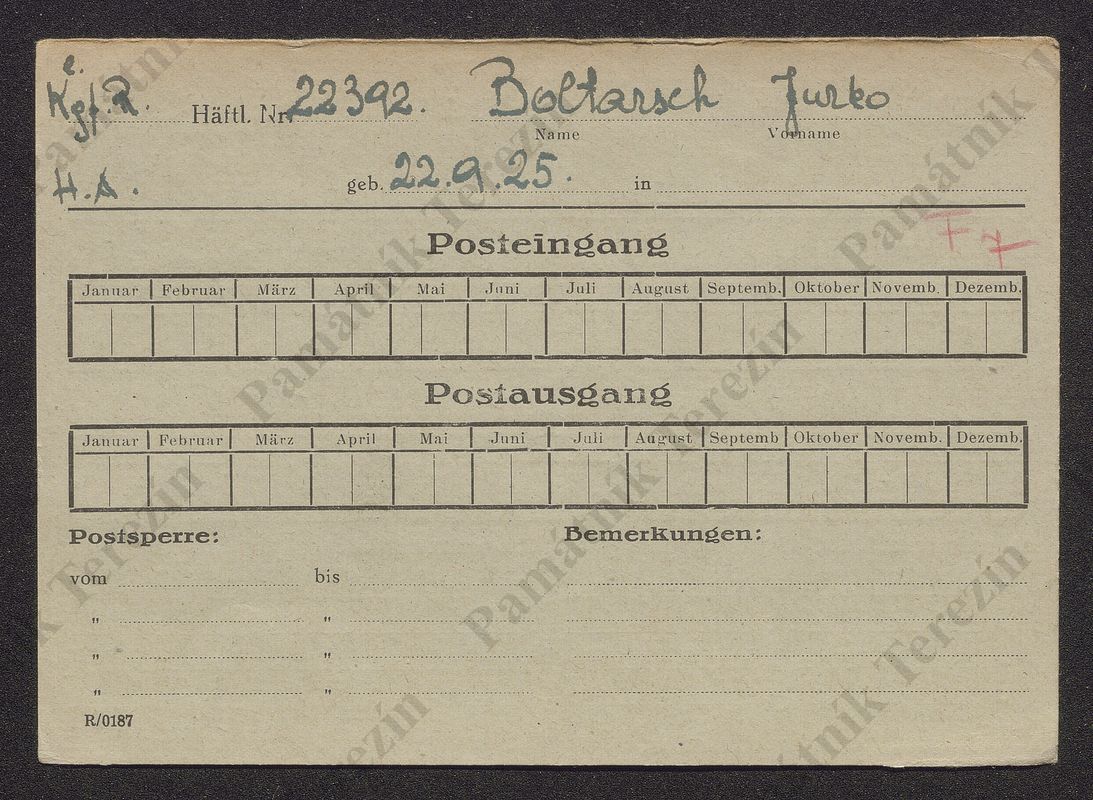 e.
Kgf. R. Häftl. Nr. 22392. Boltarsch Jurko
Name Vorname
H.A. geb. 22.9.25. in
F 7
Posteingang
Januar Februar März April Mai Juni Juli August Septemb. Oktober Novemb. Dezemb.
Postausgang
Januar Februar März April Mai Juni Juli August Septemb Oktober Novemb. Dezemb.
Postsperre: Bemerkungen:
vom bis
" "
" "
" "
R/0187
Památník Terezín